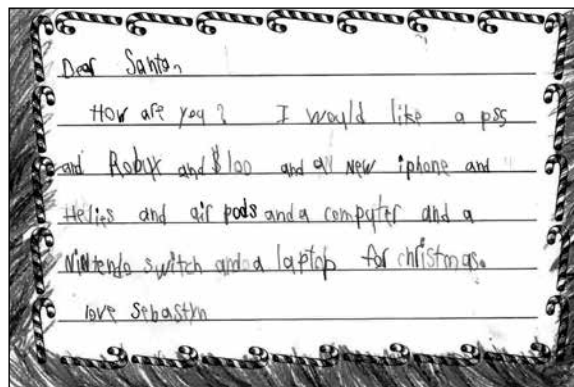 Dear Santa,
How are you? I would like a ps5
and Robux and $100 and all New iphone and
Helies and air pods and a computer and a
Nintendo switch and a laptop for christmas.
love Sebastin